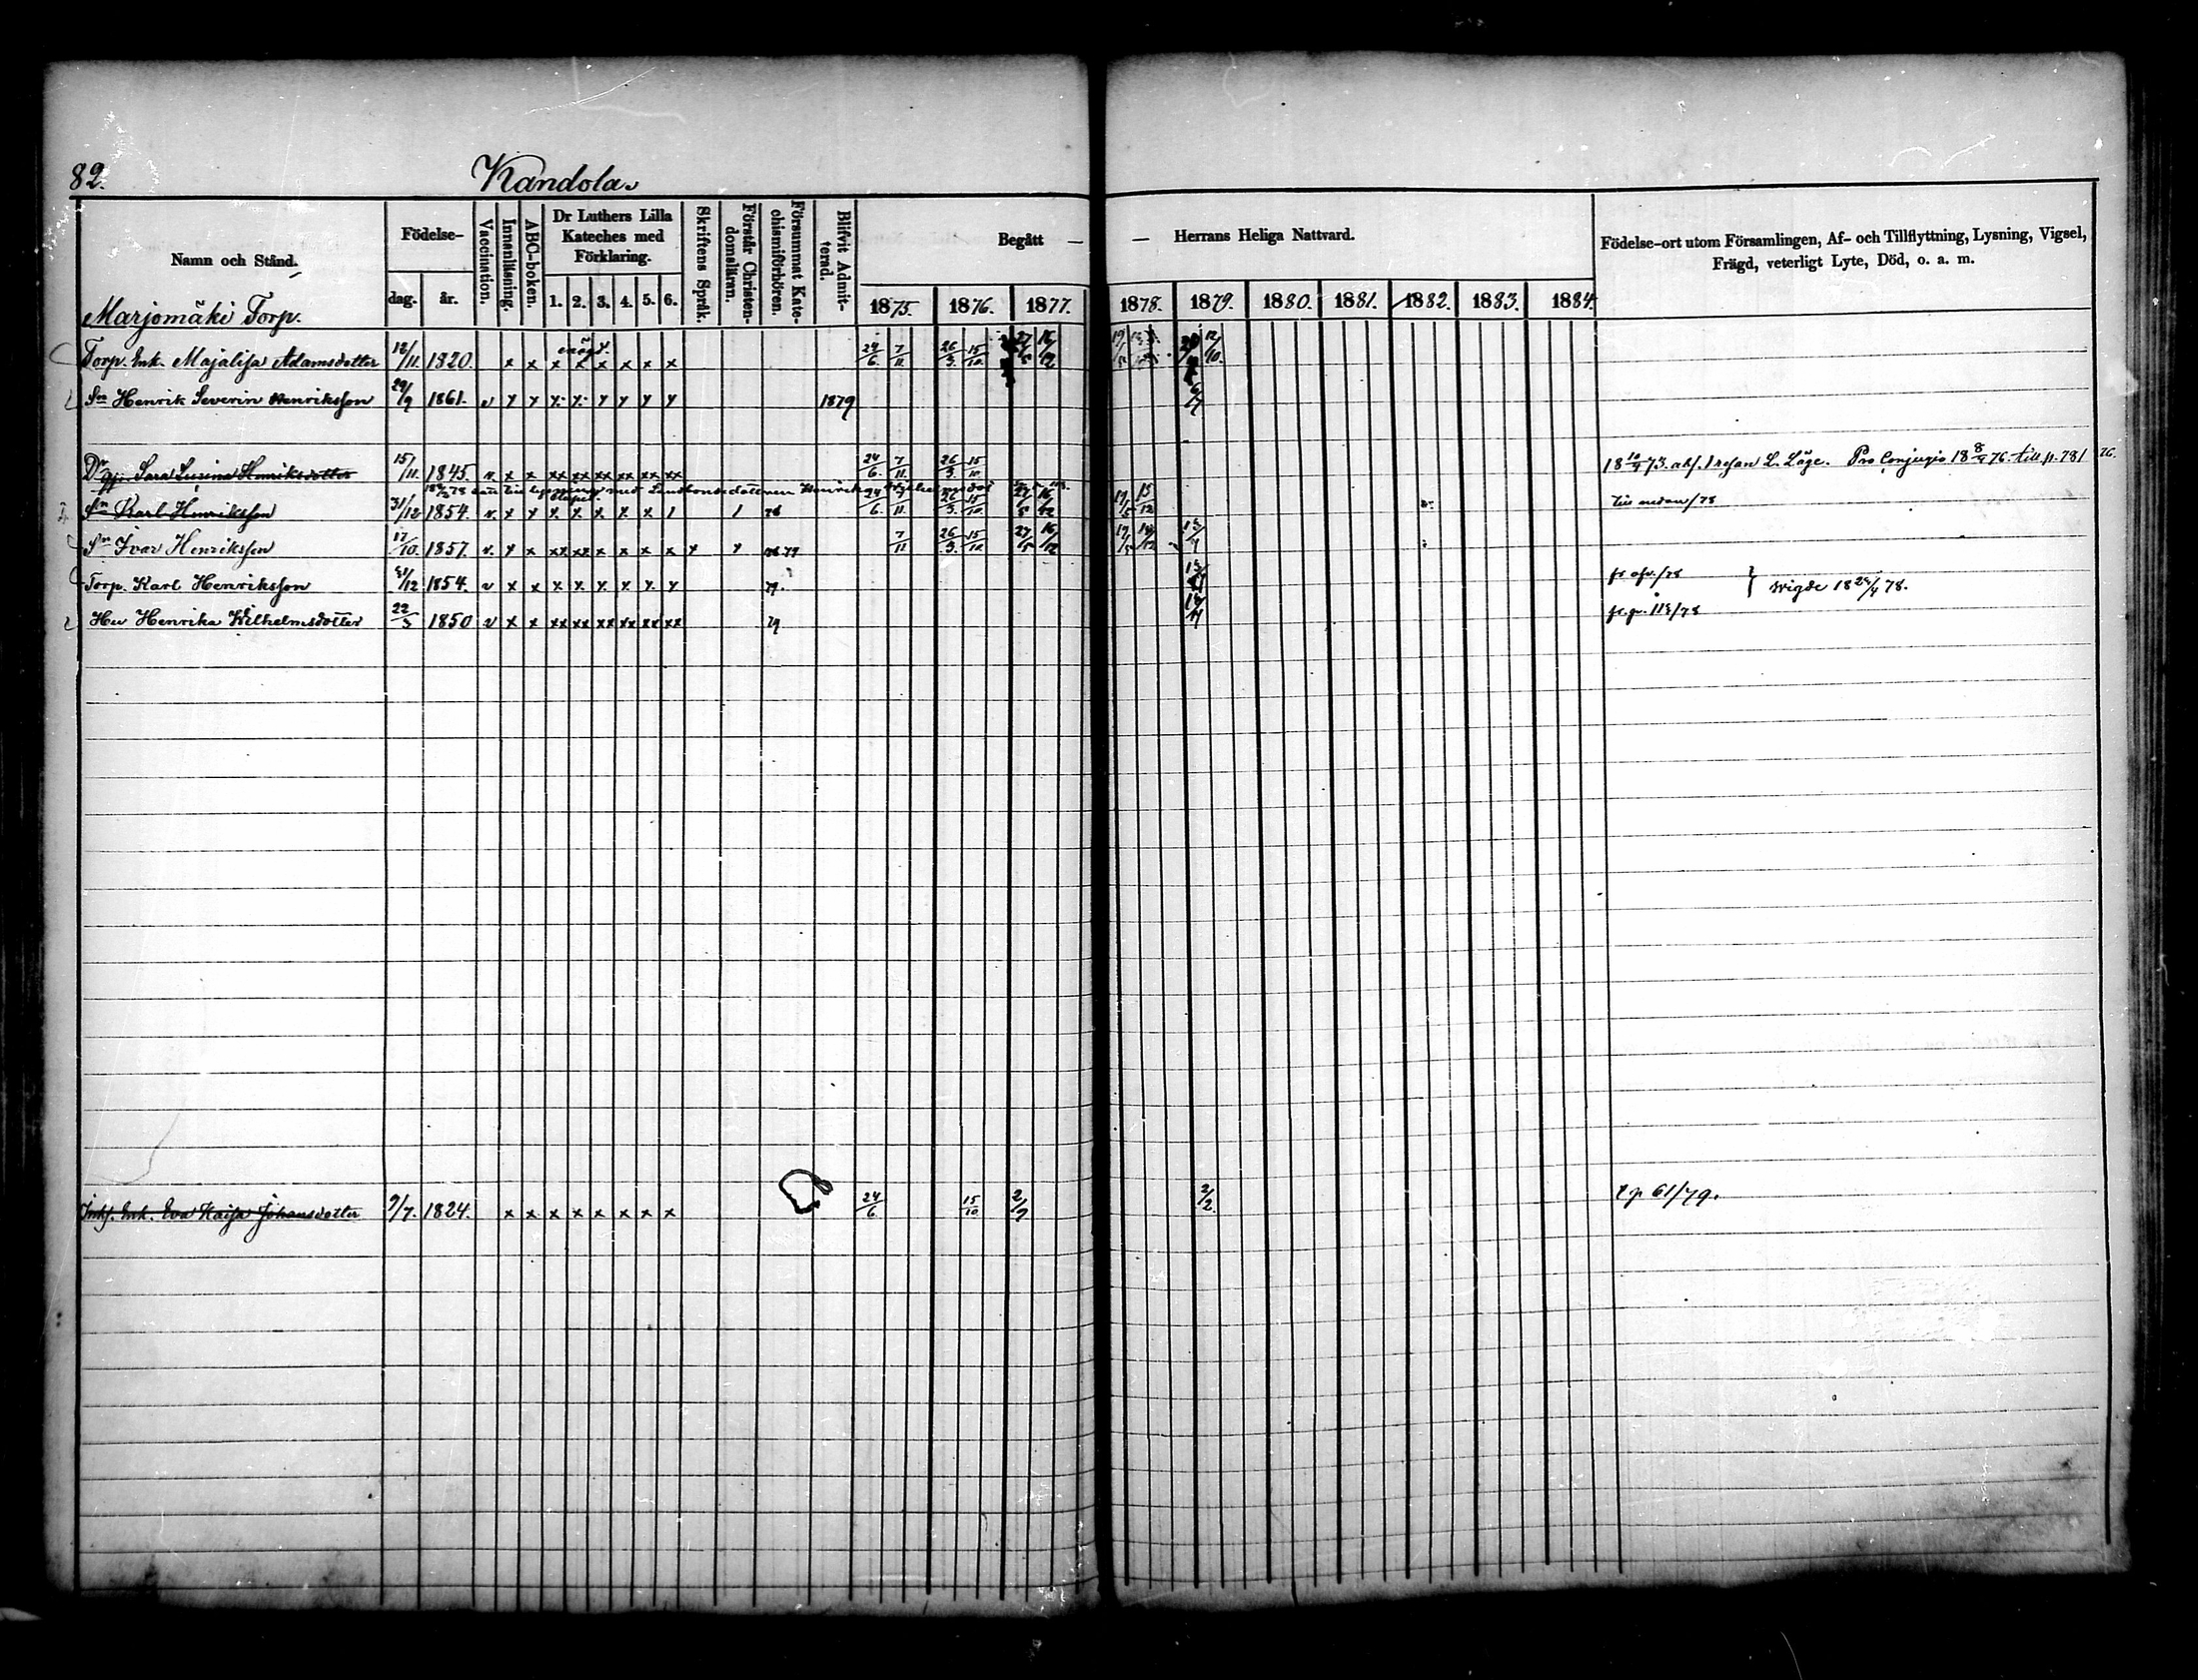 82.
Kandola.
Namn och Stånd.
Födelse-
dag. år.
Vaccination.
Innanläsning.
ABC-boken.
Dr Luthers Lilla Kateches med Förklaring.
1. 2. 3. 4. 5. 6.
Skriftens Språk.
Förstår Christendomsläran.
Försummat Katechismiförhören.
Blifvit Admitterad.
Begått — — Herrans Heliga Nattvard.
1875. 1876. 1877. 1878. 1879. 1880. 1881. 1882. 1883. 1884.
Födelse-ort utom Församlingen, Af- och Tillflyttning, Lysning, Vigsel,
Frägd, veterligt Lyte, Död, o. a. m.
Marjomäki Torp.
enögd.
Torp. Enk. Majalisa Adamsdotter 12/11. 1820. x x x x x x x x 24/6. 7/11. 26/3. 15/10. 27/5 16/12 12/10.
Sn Henrik Severin Henriksson 29/9 1861. v 1879
Dr Sara Lusina Henriksdotter 15/11. 1845. v. x x xx xx xx xx xx xx 24/6. 7/11. 26/3. 15/10. abs. Pro Conjugio till p. 781 76.
Sn Karl Henriksson 31/12 1854. v. 24/6. 7/11. 26/3. 15/10. 27/5 16/12 15/12 nedan/78
Sn Ivar Henriksson 17/10. 1857. v. 7/11 26/3. 15/10. 27/5 16/12
Torp. Karl Henriksson 31/12 1854. v x x x x x x x 79. fr ofv./78 } vigde 78.
Hu Henrika Wilhelmsdotter 22/3 1850 v x x xx xx xx xx xx xx 79 fr. p. 113/78
Inhs. Enk. Eva Kaisa Johansdotter 9/7. 1824. x x x x x x x x 24/6 15/10 2/9 2/2. t p 61/79.